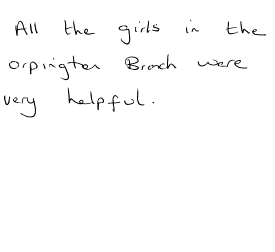 All the girls in the
orpington Branch were
very helpful.